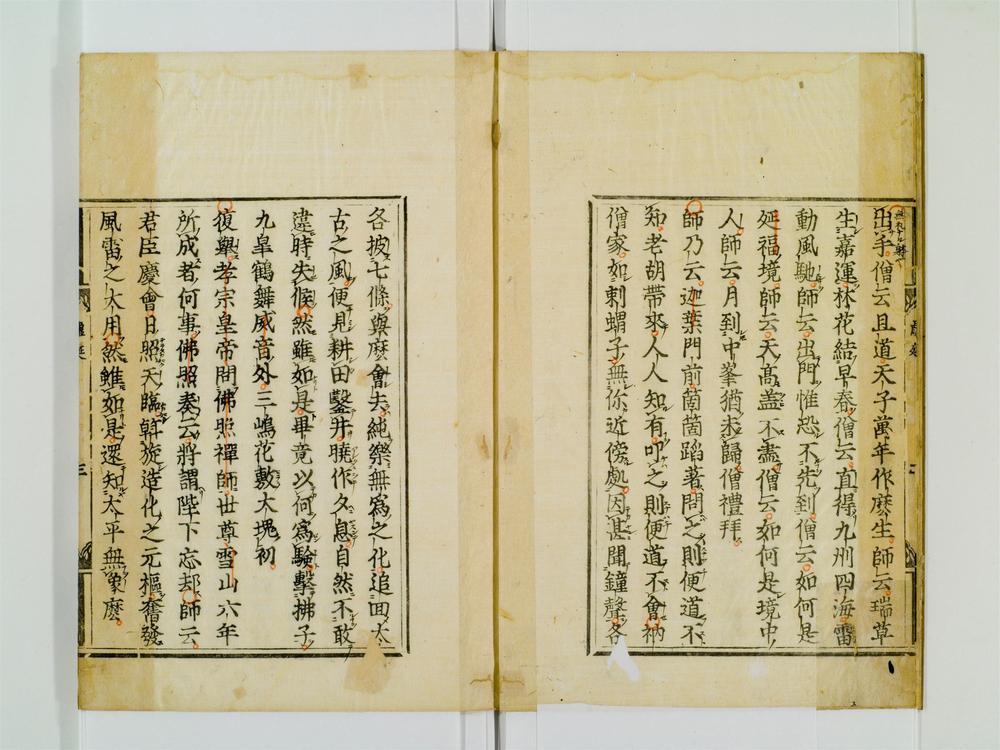 出手僧云且道天子萬年作麽生師云瑞草
生嘉運林花結早春僧云直得九州四海雷
動風馳師云出門惟恐不先到僧云如何是
延福境師云天高盖不盡僧云如何是境中
人師云月到中峯猶未歸僧禮拜
師乃云迦葉門前箇箇蹈著問之則便道不
知老胡帶來人人知有叩之則便道不會衲
僧家如刺蝟子無你近傍處因甚聞鐘聲各
各披七條與麽會去純樂無爲之化追回太
古之風便見耕田鑿井曉作夕息自然不敢
違時失候然雖如是畢竟以何爲驗擊拂子
九皐鶴舞威音外三嶋花敷大塊初
復舉孝宗皇帝問佛照禪師世尊雪山六年
所成者何事佛照奏云將謂陛下忘却師云
君臣慶會日照天臨斡旋造化之元樞奮發
風雷之大用然雖如是還知太平無象麽
三